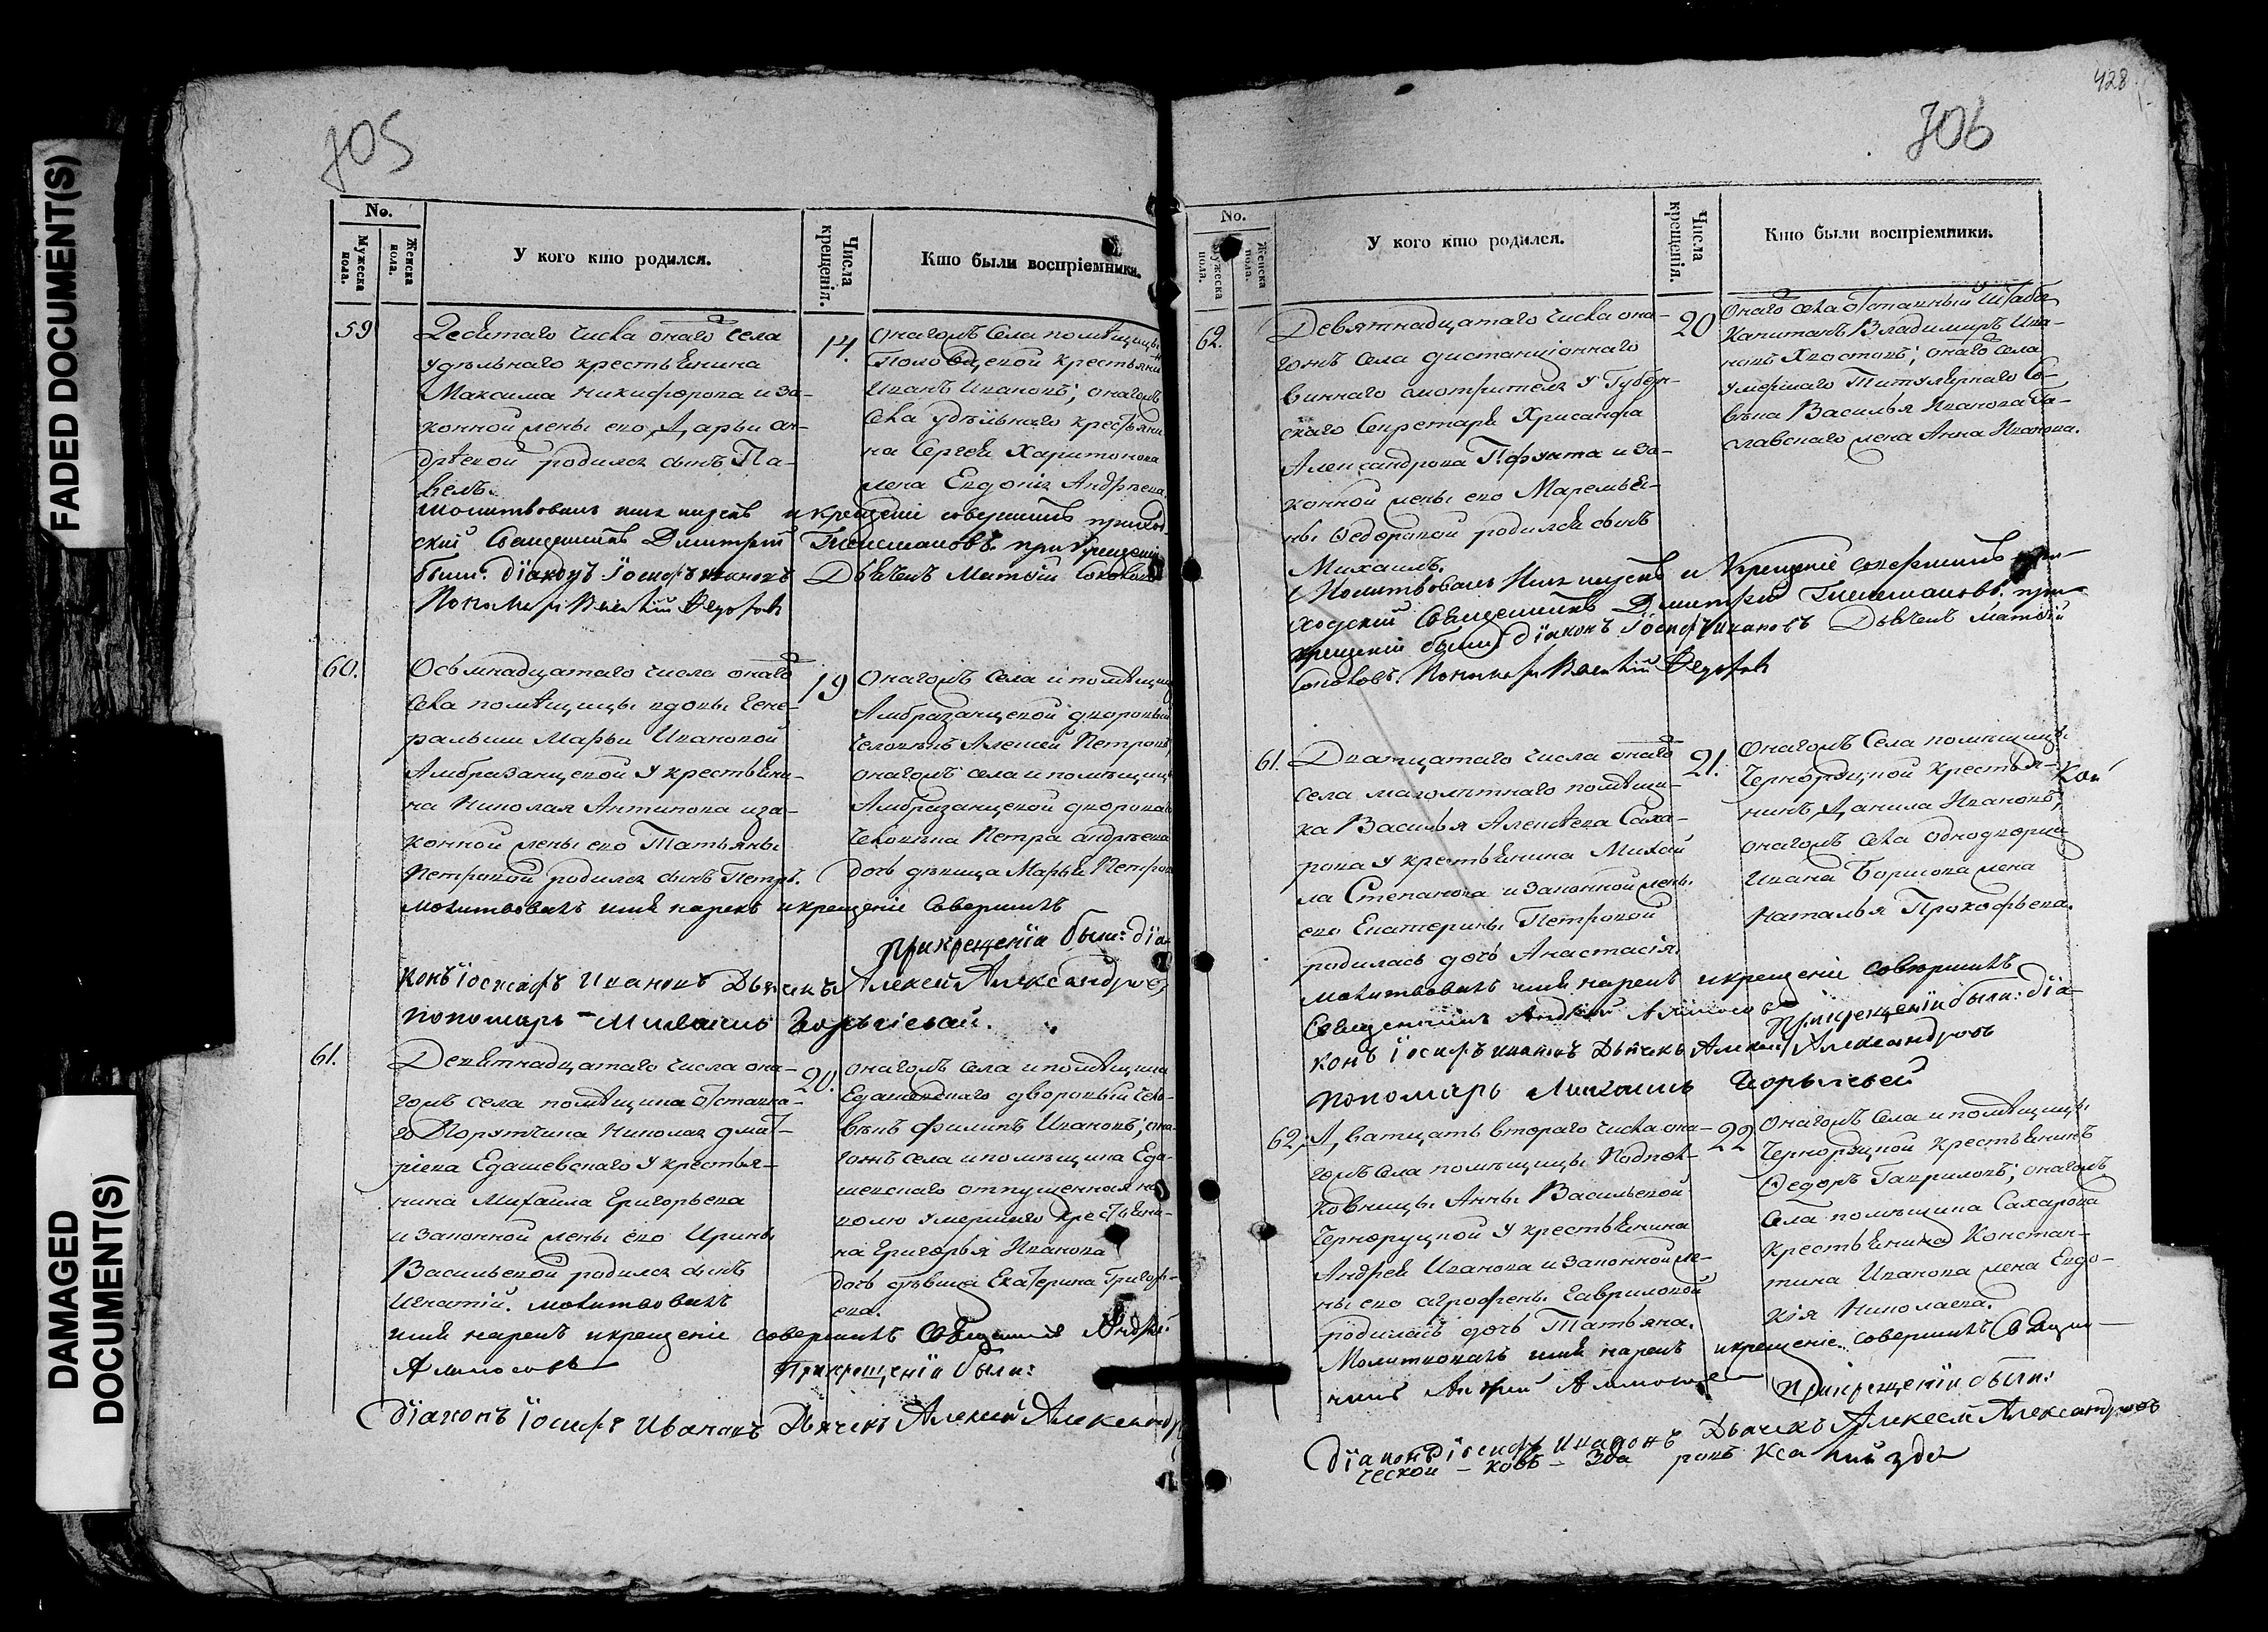 FADED DOCUMENT(S)
DAMAGED
DOCUMENT(S)
705
No.
Мужеска пола.
Женска пола.
У кого кто родился.
Числа крещенія.
Кто были воспріемники.
59
Десятаго числа онаго села
удѣльнаго крестьянина
Максима Никифорова и за-
конной жены его Дарьи Ан-
дрѣевой родился сынъ Па-
велъ.
14.
Онагожъ села помѣщицы
крестьянин
Иванъ Ивановъ; онагожъ
села удѣльнаго крестьяни
на Сергея Харитонова
жена Евдокія Андрѣева.
Молитвовалъ имя нарекъ и крещеніе совершилъ приход
скій Священникъ Димитрій при крещеніи
были: діаконъ Іосифъ Ивановъ Дьячекъ Матвій Соколовъ
Пономарь Василій Федоровъ
60.
Осьмнадцатаго числа онаго
села помѣщицы вдовы Гене-
ральши Марьи Ивановой
Амбразанцевой у крестьяни-
на Николая Антипова и за-
конной жены его Татьяны
Петровой родился сынъ Петръ.
19
Онагожъ села и помѣщицы
Амбразанцевой дворовый
человѣкъ Алексей Петровъ
онагожъ села и помѣщицы
Амбразанцевой двороваго
человѣка Петра Андрѣева
дочь дѣвица Марья Петрова
молитвовалъ имя нарекъ и крещеніе совершилъ
при крещеніи были: діа
конъ Іосифъ Ивановъ Дьячекъ Алексей Александровъ
пономарь Михаилъ
61.
Девятнадцатаго числа она-
гожъ села помѣщика отставна-
го Порутчика Николая Дмит-
ріева Едашевскаго у крестья-
нина Михаила Григорьева
и законной жены его Ирины
Васильевой родился сынъ
Игнатій. молитвовалъ
20.
онагожъ села и помѣщика
Едашевскаго дворовый чело-
вѣкъ Филипъ Ивановъ; она-
гожъ села и помѣщика Еда-
шевскаго отпущенная на
волю умершаго крестьяни-
на Григорья Иванова
дочь дѣвица Екатерина Григорь-
ева.
имя нарекъ и крещеніе совершилъ Священникъ Андрей
при крещеніи были:
діаконъ Іосифъ Ивановъ Дьячекъ Алексей Александр
428
706
No.
Мужеска пола.
Женска пола.
У кого кто родился.
Числа крещенія.
Кто были воспріемники.
62.
Девятнадцатаго числа она-
гожъ села дистанціоннаго
виннаго смотрителя у Губерн-
скаго Секретаря Хрисанфа
Александрова и за-
конной жены его Маремья-
ны Федоровой родился сынъ
Михаилъ.
20
Онаго села отставный Штабсъ
Капитанъ Владимиръ Ива-
новъ Хвостовъ; онаго села
умершаго Титулярнаго Со-
вѣта Василья Иванова
жена Анна Иванова.
Молитвовалъ имя нарекъ и крещеніе совершилъ при-
ходскій Священникъ Димитрій при
крещеніи были: діаконъ Іосифъ Ивановъ Дьячекъ Матвій
Соколовъ. Пономарь Василій Федоровъ
61.
Дватцатаго числа онаго
села малолѣтнаго помѣщи-
ка Василья Алексѣева Саха-
рова у крестьянина Михаи
ла Степанова и законной жены
его Екатерины Петровой
родилась дочь Анастасія.
21.
Онагожъ села помѣщицы
Черноруцкой крестья-
нинъ Данила Ивановъ,
онагожъ села однодворца
Ивана Борисова жена
Наталья Прокофьева.
молитвовалъ имя нарекъ и крещеніе совершилъ
Священникъ Андрей при крещеніи были: діа-
конъ Іосифъ Ивановъ Дьячекъ Алексей Александровъ
пономарь Михаилъ
62.
Дватцать втораго числа она-
гожъ села помѣщицы Подпол-
ковницы Анны Васильевой
Черноруцкой у крестьянина
Андрея Иванова и законной же-
ны его Агрофены Гавриловой
родилась дочь Татьяна.
22
Онагожъ села и помѣщицы
Черноруцкой крестьянинъ
Федоръ Гавриловъ; онагожъ
села помѣщика Сахарова
крестьянина Констан-
тина Иванова жена Евдо-
кія Николаева.
Молитвовалъ имя нарекъ и крещеніе совершилъ Священ-
никъ Андрей при крещеніи были:
діаконъ Іосифъ Ивановъ Дьячекъ Алексей Александровъ